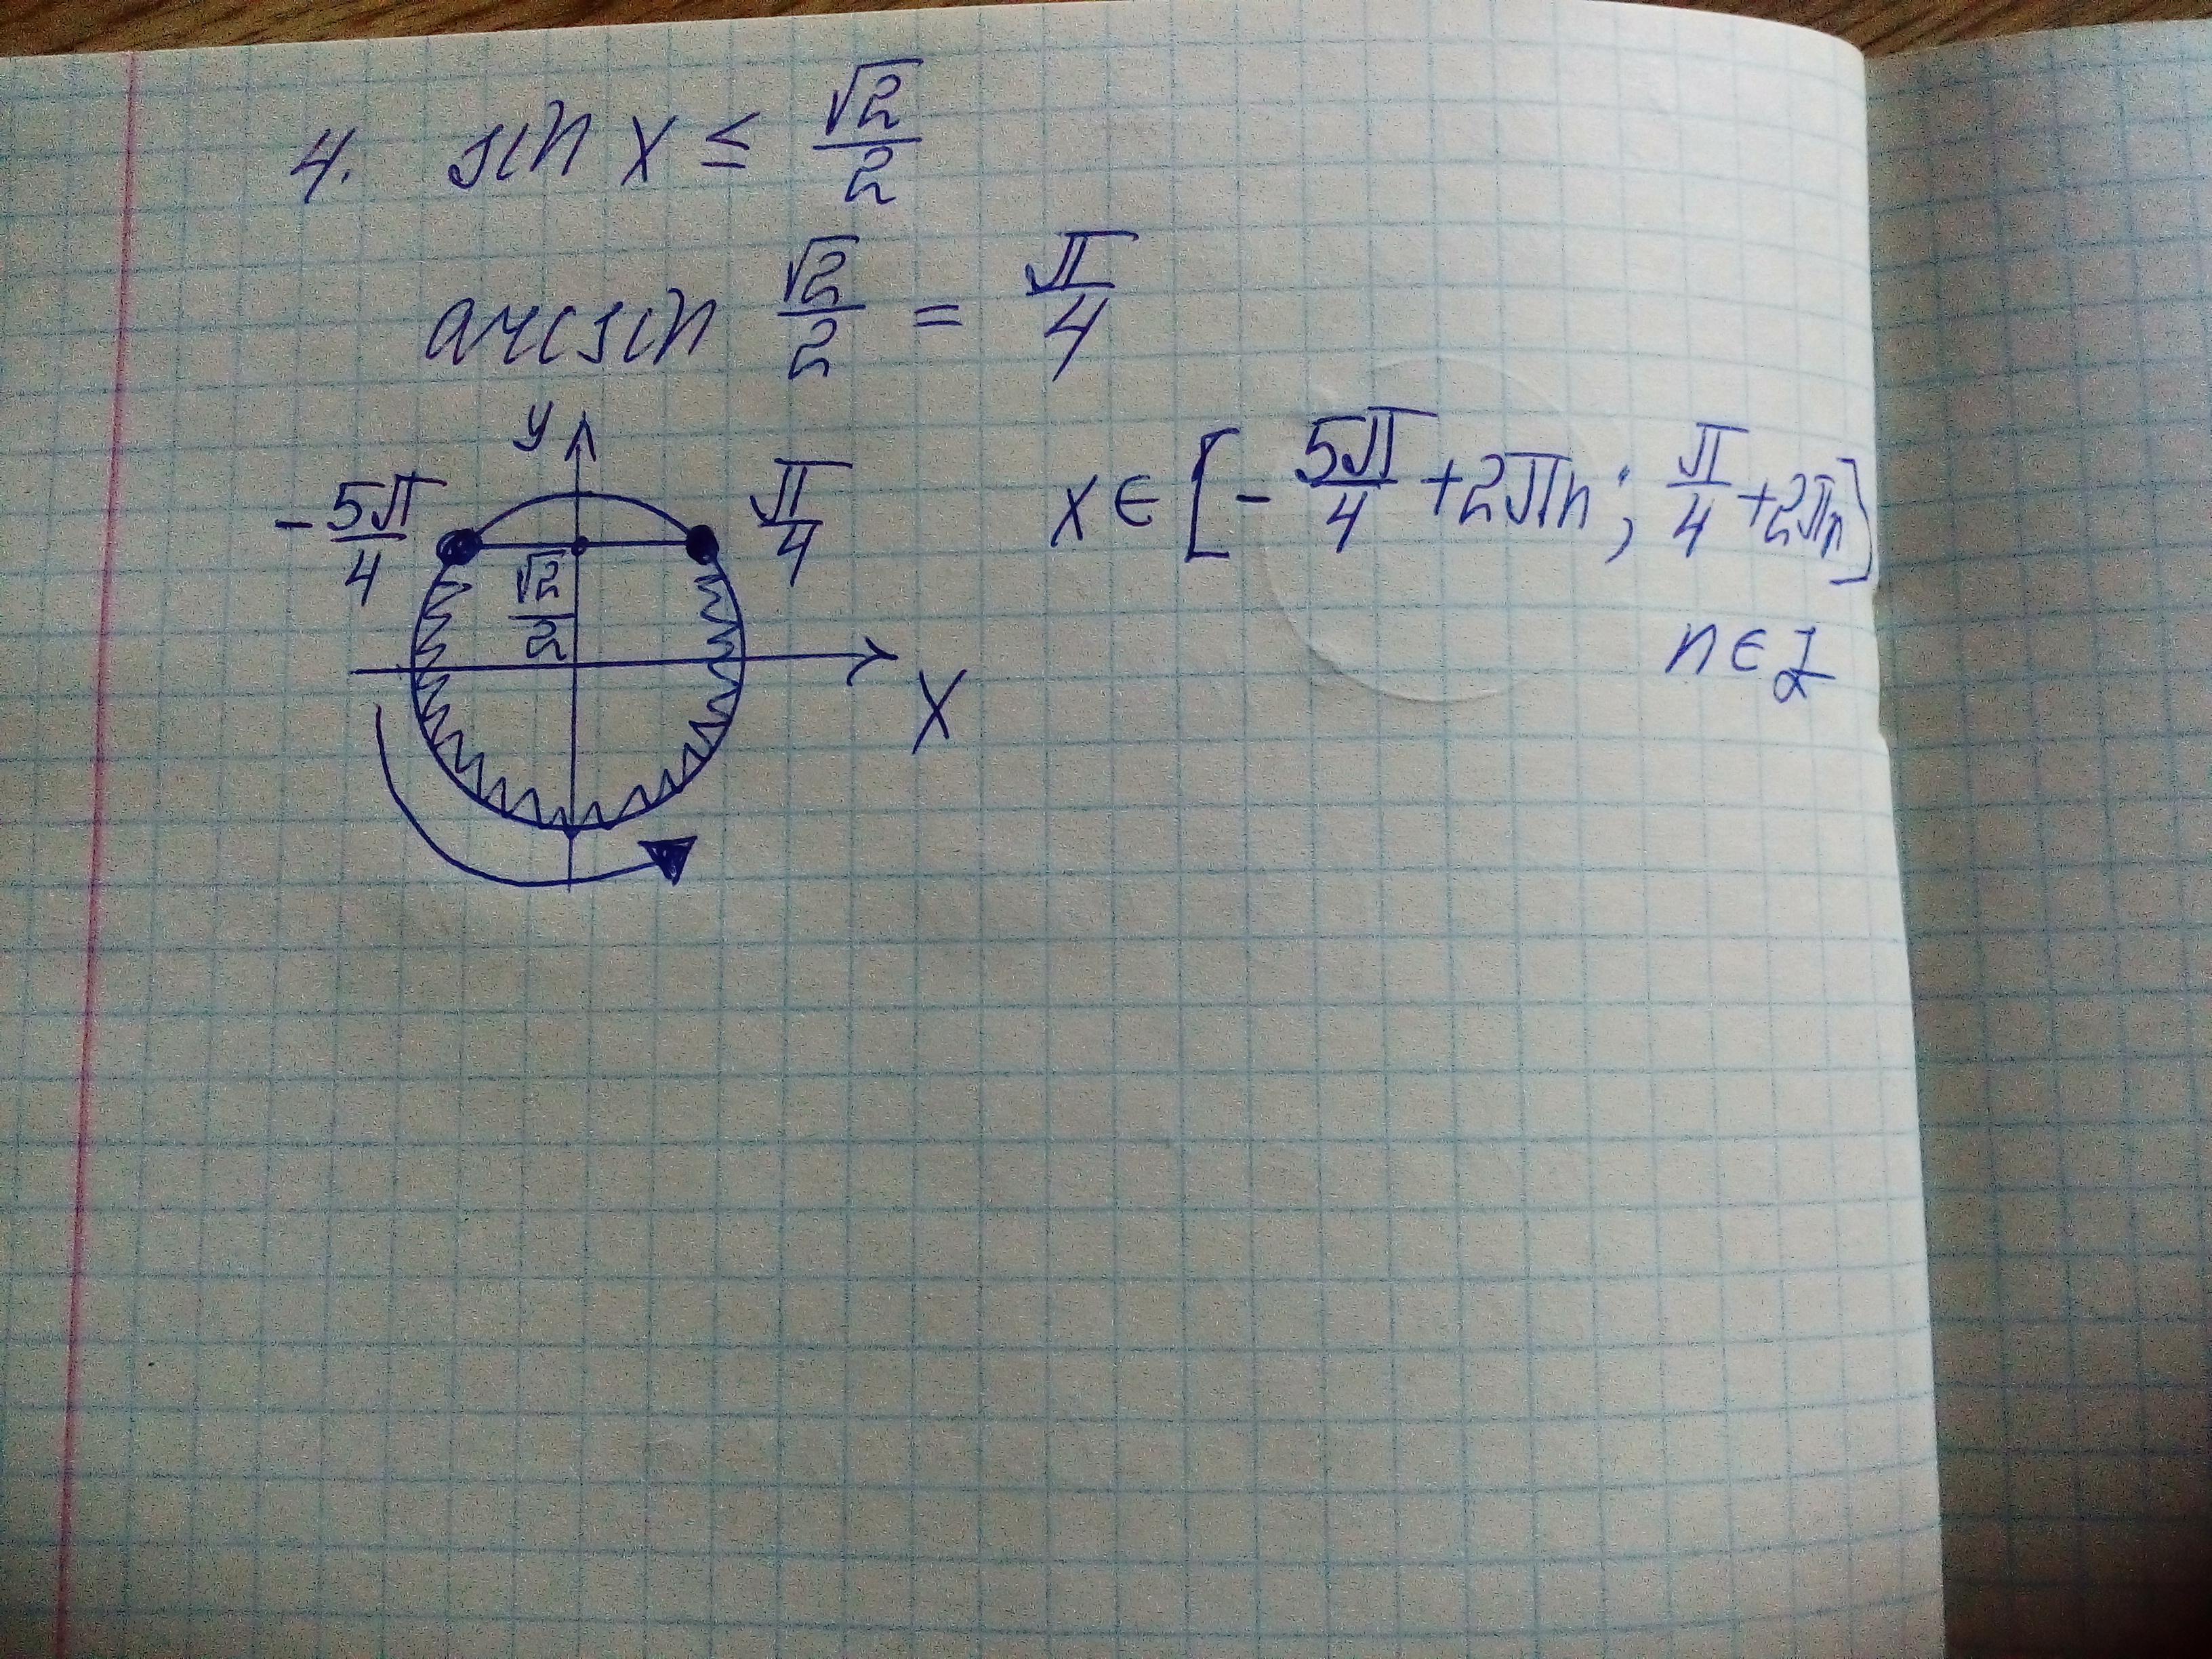 4. sin x ≤ √2/2
arcsin √2/2 = π/4
y
-5π/4
π/4
√2/2
x
x ∈ [-5π/4 + 2πn; π/4 + 2πn]
n ∈ Z